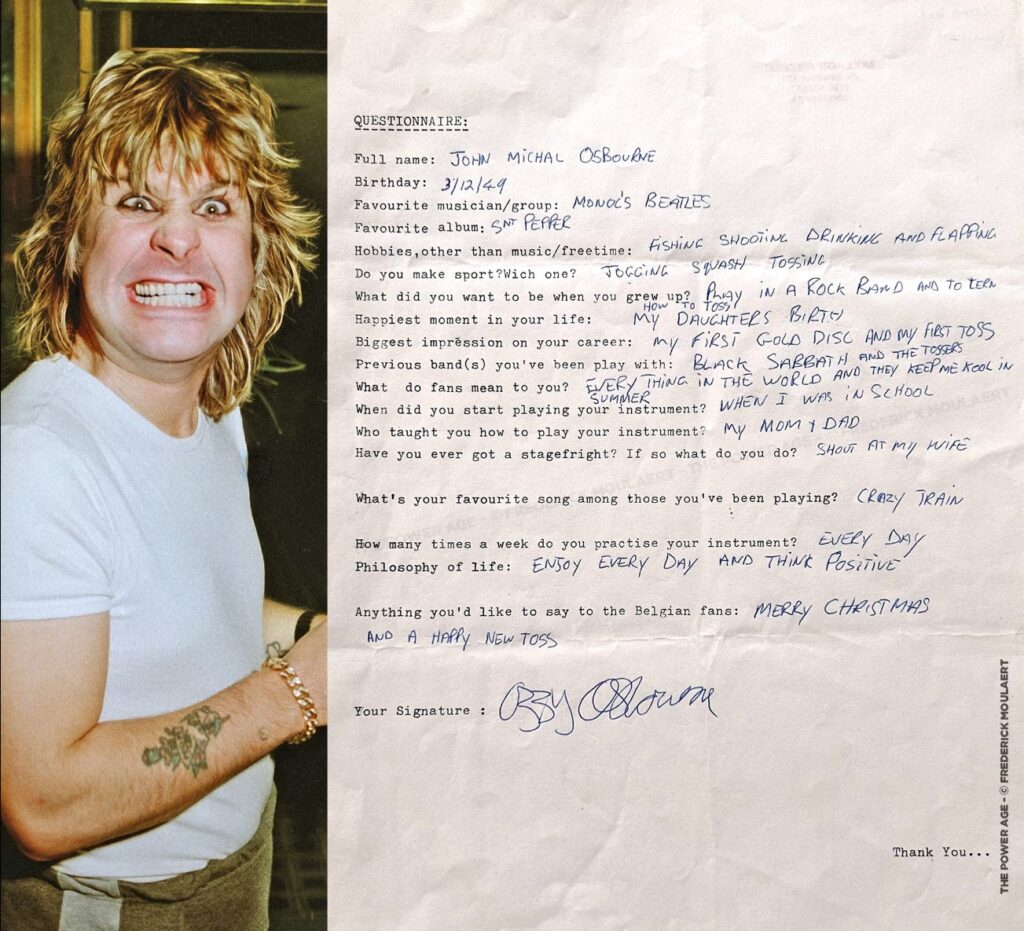 QUESTIONNAIRE:
Full name: JOHN MICHAL OSBOURNE
Birthday: 3/12/49
Favourite musician/group: BEATLES
Favourite album: SNT PEPPER
Hobbies,other than music/freetime: FISHING SHOOTING DRINKING AND FLAPPING
Do you make sport?Wich one? JOGGING SQUASH TOSSING
What did you want to be when you grew up? PLAY IN A ROCK BAND AND TO LERN
HOW TO TOSS
Happiest moment in your life: MY DAUGHTERS BIRTH
Biggest impression on your career: MY FIRST GOLD DISC AND MY FIRST TOSS
Previous band(s) you've been play with: BLACK SABBATH AND THE TOSSERS
What do fans mean to you? EVERY THING IN THE WORLD AND THEY KEEP ME KOOL IN
SUMMER
When did you start playing your instrument? WHEN I WAS IN SCHOOL
Who taught you how to play your instrument? MY MOM & DAD
Have you ever got a stagefright? If so what do you do? SHOUT AT MY WIFE
What's your favourite song among those you've been playing? CRAZY TRAIN
How many times a week do you practise your instrument? EVERY DAY
Philosophy of life: ENJOY EVERY DAY AND THINK POSITIVE
Anything you'd like to say to the Belgian fans: MERRY CHRISTMAS
AND A HAPPY NEW TOSS
Your Signature : Ozzy Osbourne
Thank You...
THE POWER AGE - © FREDERICK MOULAERT